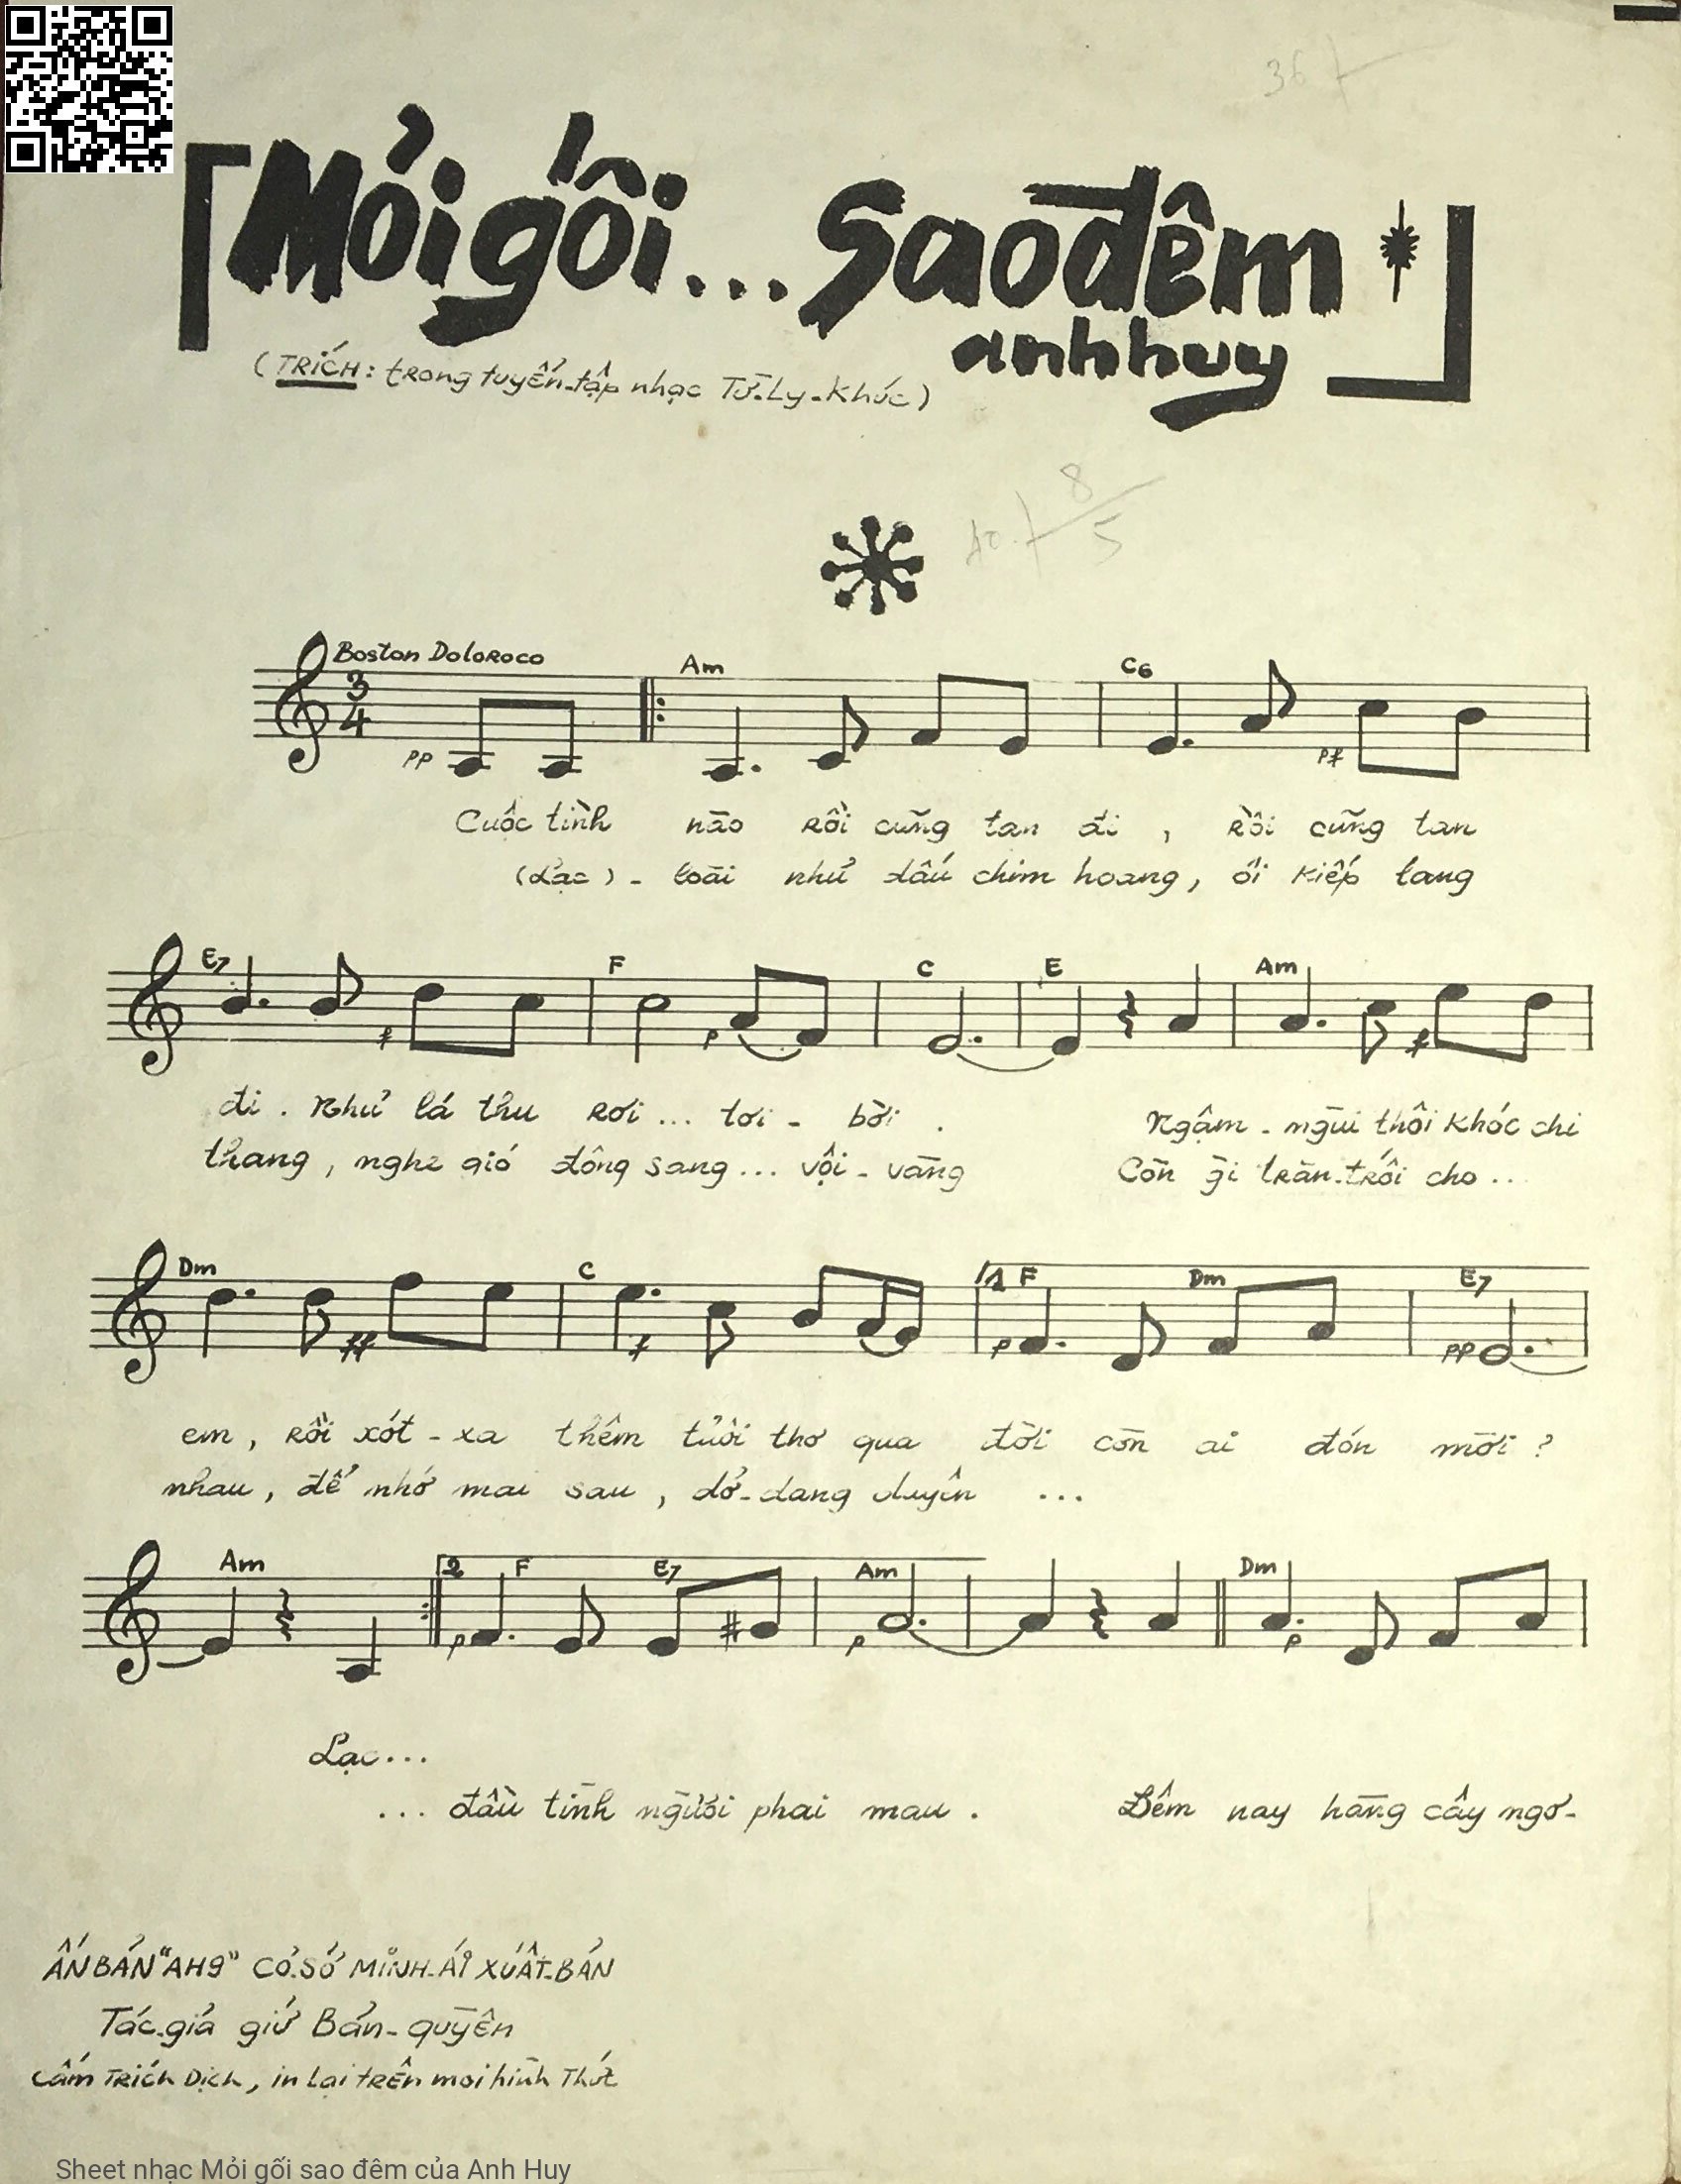 36
Mỏi gối... sao đêm
anh huy
(TRÍCH: trong tuyển-tập nhạc Từ-Ly-Khúc)
8
5
Boston Doloroco
3
4
Am C6
pp pf
Cuộc tình nào rồi cũng tan đi , rồi cũng tan
(Lạc) - loài như dấu chim hoang, ôi kiếp lang
E7 F C E Am
f p f
đi . Như lá thu rơi ... tơi - bời . Ngậm - ngùi thôi khóc chi
thang , nghe gió đông sang ... vội - vàng Còn gì trăn-trối cho ...
Dm C 1 F Dm E7
ff f p pp
em , rồi xót - xa thêm tuổi thơ qua đời còn ai đón mời ?
nhau , để nhớ mai sau , dở-dang duyên ...
Am 2 F E7 Am Dm
p p p
Lạc...
... đầu tình người phai mau . Đêm nay hàng cây ngơ-
ẤN BẢN "AH9" CƠ-SỞ MINH-ÁI XUẤT-BẢN
Tác-giả giữ Bản-quyền
Cấm Trích Dịch, in lại trên mọi hình Thức
Sheet nhạc Mỏi gối sao đêm của Anh Huy